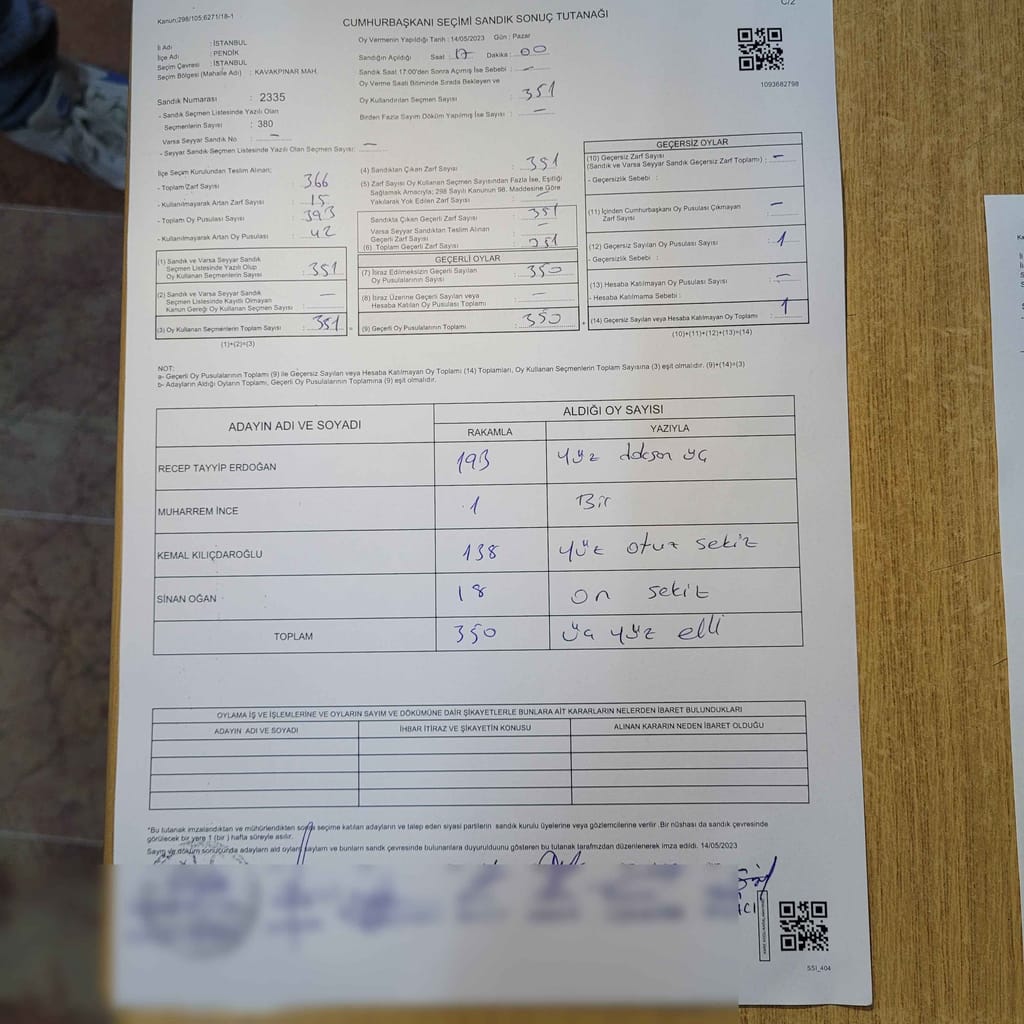 C/2
Kanun:298/105:6271/18-1
CUMHURBAŞKANI SEÇİMİ SANDIK SONUÇ TUTANAĞI
İli Adı : İSTANBUL
İlçe Adı : PENDİK
Seçim Çevresi : İSTANBUL
Seçim Bölgesi (Mahalle Adı) : KAVAKPINAR MAH.
Sandık Numarası : 2335
- Sandık Seçmen Listesinde Yazılı Olan
Seçmenlerin Sayısı : 380
Varsa Seyyar Sandık No : —
- Seyyar Sandık Seçmen Listesinde Yazılı Olan Seçmen Sayısı: —
Oy Vermenin Yapıldığı Tarih : 14/05/2023 Gün : Pazar
Sandığın Açıldığı Saat : 17 Dakika : 00
Sandık Saat 17:00'den Sonra Açılmış İse Sebebi : —
Oy Verme Saati Bitiminde Sırada Bekleyen ve
Oy Kullandırılan Seçmen Sayısı : 351
Birden Fazla Sayım Döküm Yapılmış İse Sayısı : —
1093682798
İlçe Seçim Kurulundan Teslim Alınan;
- Toplam Zarf Sayısı : 366
- Kullanılmayarak Artan Zarf Sayısı : 15
- Toplam Oy Pusulası Sayısı : 393
- Kullanılmayarak Artan Oy Pusulası : 42
(1) Sandık ve Varsa Seyyar Sandık
Seçmen Listesinde Yazılı Olup
Oy Kullanan Seçmenlerin Sayısı : 351
(2) Sandık ve Varsa Seyyar Sandık
Seçmen Listesinde Kayıtlı Olmayan
Kanun Gereği Oy Kullanan Seçmen Sayısı : —
(3) Oy Kullanan Seçmenlerin Toplam Sayısı : 351
(1)+(2)=(3)
(4) Sandıktan Çıkan Zarf Sayısı : 351
(5) Zarf Sayısı Oy Kullanan Seçmen Sayısından Fazla İse, Eşitliği
Sağlamak Amacıyla; 298 Sayılı Kanunun 98. Maddesine Göre
Yakılarak Yok Edilen Zarf Sayısı : —
Sandıkta Çıkan Geçerli Zarf Sayısı : 351
Varsa Seyyar Sandıktan Teslim Alınan
Geçerli Zarf Sayısı : —
(6) Toplam Geçerli Zarf Sayısı : 351
GEÇERLİ OYLAR
(7) İtiraz Edilmeksizin Geçerli Sayılan
Oy Pusulalarının Sayısı : 350
(8) İtiraz Üzerine Geçerli Sayılan veya
Hesaba Katılan Oy Pusulası Toplamı : —
(9) Geçerli Oy Pusulalarının Toplamı : 350
GEÇERSİZ OYLAR
(10) Geçersiz Zarf Sayısı
(Sandık ve Varsa Seyyar Sandık Geçersiz Zarf Toplamı) : —
- Geçersizlik Sebebi :
(11) İçinden Cumhurbaşkanı Oy Pusulası Çıkmayan
Zarf Sayısı : —
(12) Geçersiz Sayılan Oy Pusulası Sayısı : 1
- Geçersizlik Sebebi :
(13) Hesaba Katılmayan Oy Pusulası Sayısı : —
- Hesaba Katılmama Sebebi :
(14) Geçersiz Sayılan veya Hesaba Katılmayan Oy Toplamı : 1
(10)+(11)+(12)+(13)=(14)
NOT:
a- Geçerli Oy Pusulalarının Toplamı (9) ile Geçersiz Sayılan veya Hesaba Katılmayan Oy Toplamı (14) Toplamları, Oy Kullanan Seçmenlerin Toplam Sayısına (3) eşit olmalıdır. (9)+(14)=(3)
b- Adayların Aldığı Oyların Toplamı, Geçerli Oy Pusulalarının Toplamına (9) eşit olmalıdır.
ADAYIN ADI VE SOYADI ALDIĞI OY SAYISI
RAKAMLA YAZIYLA
RECEP TAYYİP ERDOĞAN 193 yüz doksan üç
MUHARREM İNCE 1 Bir
KEMAL KILIÇDAROĞLU 138 yüz otuz sekiz
SİNAN OĞAN 18 on sekiz
TOPLAM 350 üç yüz elli
OYLAMA İŞ VE İŞLEMLERİNE VE OYLARIN SAYIM VE DÖKÜMÜNE DAİR ŞİKAYETLERLE BUNLARA AİT KARARLARIN NELERDEN İBARET BULUNDUKLARI
ADAYIN ADI VE SOYADI İHBAR İTİRAZ VE ŞİKAYETİN KONUSU ALINAN KARARIN NEDEN İBARET OLDUĞU
*Bu tutanak imzalandıktan ve mühürlendikten sonra seçime katılan adayların ve talep eden siyasi partilerin sandık kurulu üyelerine veya gözlemcilerine verilir .Bir nüshası da sandık çevresinde
görülecek bir yere 1 (bir ) hafta süreyle asılır.
Sayım ve döküm sonucunda adayların aldığı oyları sayları ve bunların sandık çevresinde bulunanlara duyurulduunu gösteren bu tutanak tarafımızdan düzenlenerek imza edildi. 14/05/2023
SSI_404